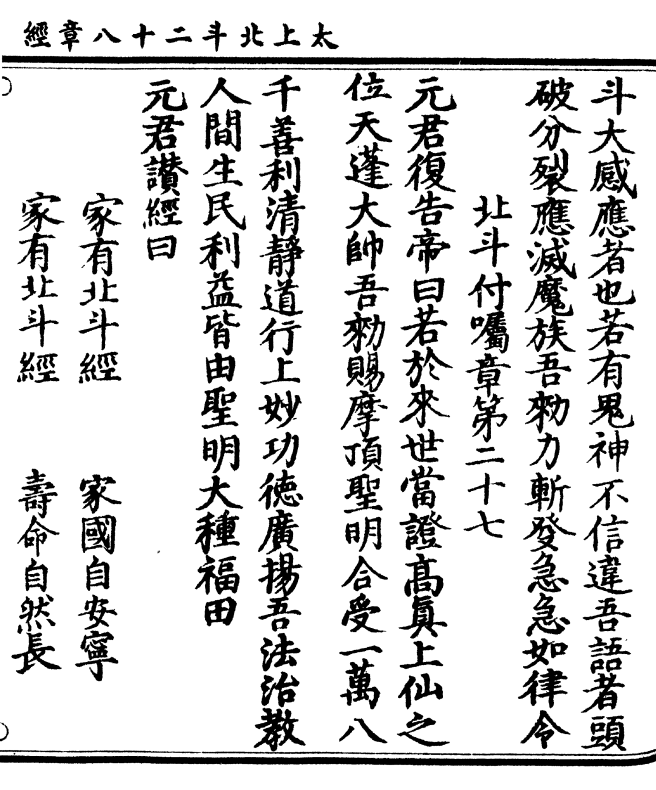 太上北斗二十八章經
斗大感應者也若有鬼神不信違吾語者頭
破分裂應滅魔族吾勑力斬發急急如律令
北斗付囑章第二十七
元君復告帝曰若於來世當證高真上仙之
位天蓬大帥吾勑賜摩頂聖明合受一萬八
千善利清靜道行上妙功德廣揚吾法治教
人間生民利益皆由聖明大種福田
元君讃經曰
家有北斗經 家國自安寧
家有北斗經 壽命自然長